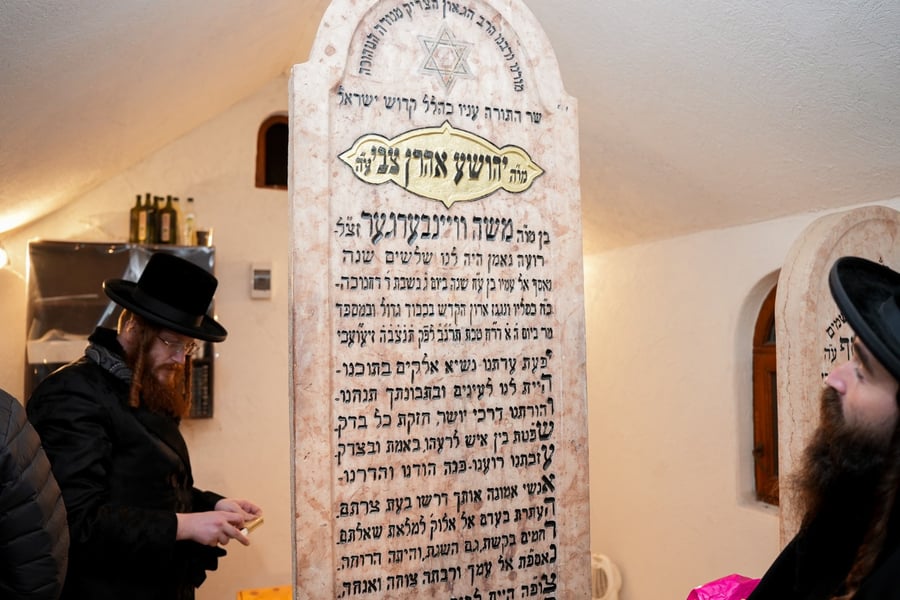 מורנו ורבנו הרב הגאון הצדיק מנורה הטהורה
שר התורה עניו כהלל קדוש ישראל
מו"ה יהושע אהרן צבי ע"ה
בן מו"ה משה וויינבערגער זצ"ל
רועה נאמן היה לנו שלשים שנה
נאסף אל עמיו בן ע"ח שנה ביום ג' בשבת ד' דחנוכה
כ"ח כסליו ונגנז ארון הקדש בכבוד גדול ובמספד
מר ביום ה' א' דר"ח טבת תרנ"ב לפ"ק תנצב"ה זיעועכי
יפעת עדתנו נשיא אלקים בתוכנו
היית לנו לעינים ובתבונתך תנחנו
והורתנו דרכי יושר, חזקת כל בדק
שפטת בין איש לרעהו, באמת ובצדק
עזבתנו רוענו פנה הודנו והדרנו
אנשי אמונה אותך דרשו בעת צרתם
העתרת בעדם אל אלוק למלאת שאלתם
רחמים בקשת, גם השגת, והיתה הרוחה
נאספת אל עמך ורבתה צוחה ואנחה
צופה היית לבית